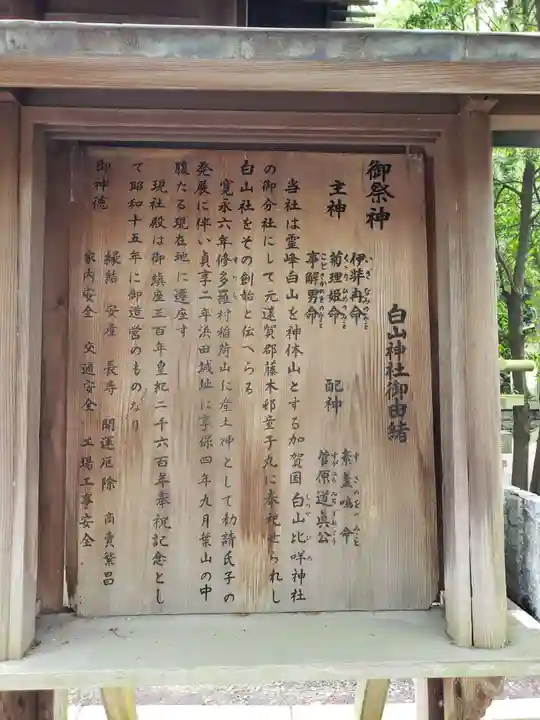 白山神社御由緒
御祭神
主神
伊弉再命
いざなみのみこと
菊理姫命
くくりひめのみこと
事解男命
ことさかのをのみこと
配神
素盞嗚命
すさのをのみこと
菅原道眞公
すがわらみちざねこう
当社は霊峰白山を神体山とする加賀国白山比咩神社
の御分社にして元遠賀郡藤木邨童子丸に奉祀せられし
白山社をその創始と伝へらる
寛永六年修多羅村稲荷山に産土神として勧請氏子の
発展に伴い貞享二年浜田城址に享保四年九月葉山の中
腹たる現在地に遷座す
現社殿は御鎮座三百年皇紀二千六百年奉祝記念とし
て昭和十五年に御造営のものなり
御神徳
縁結 安産 長寿 開運厄除 商賣繁昌
家内安全 交通安全 工場工事安全